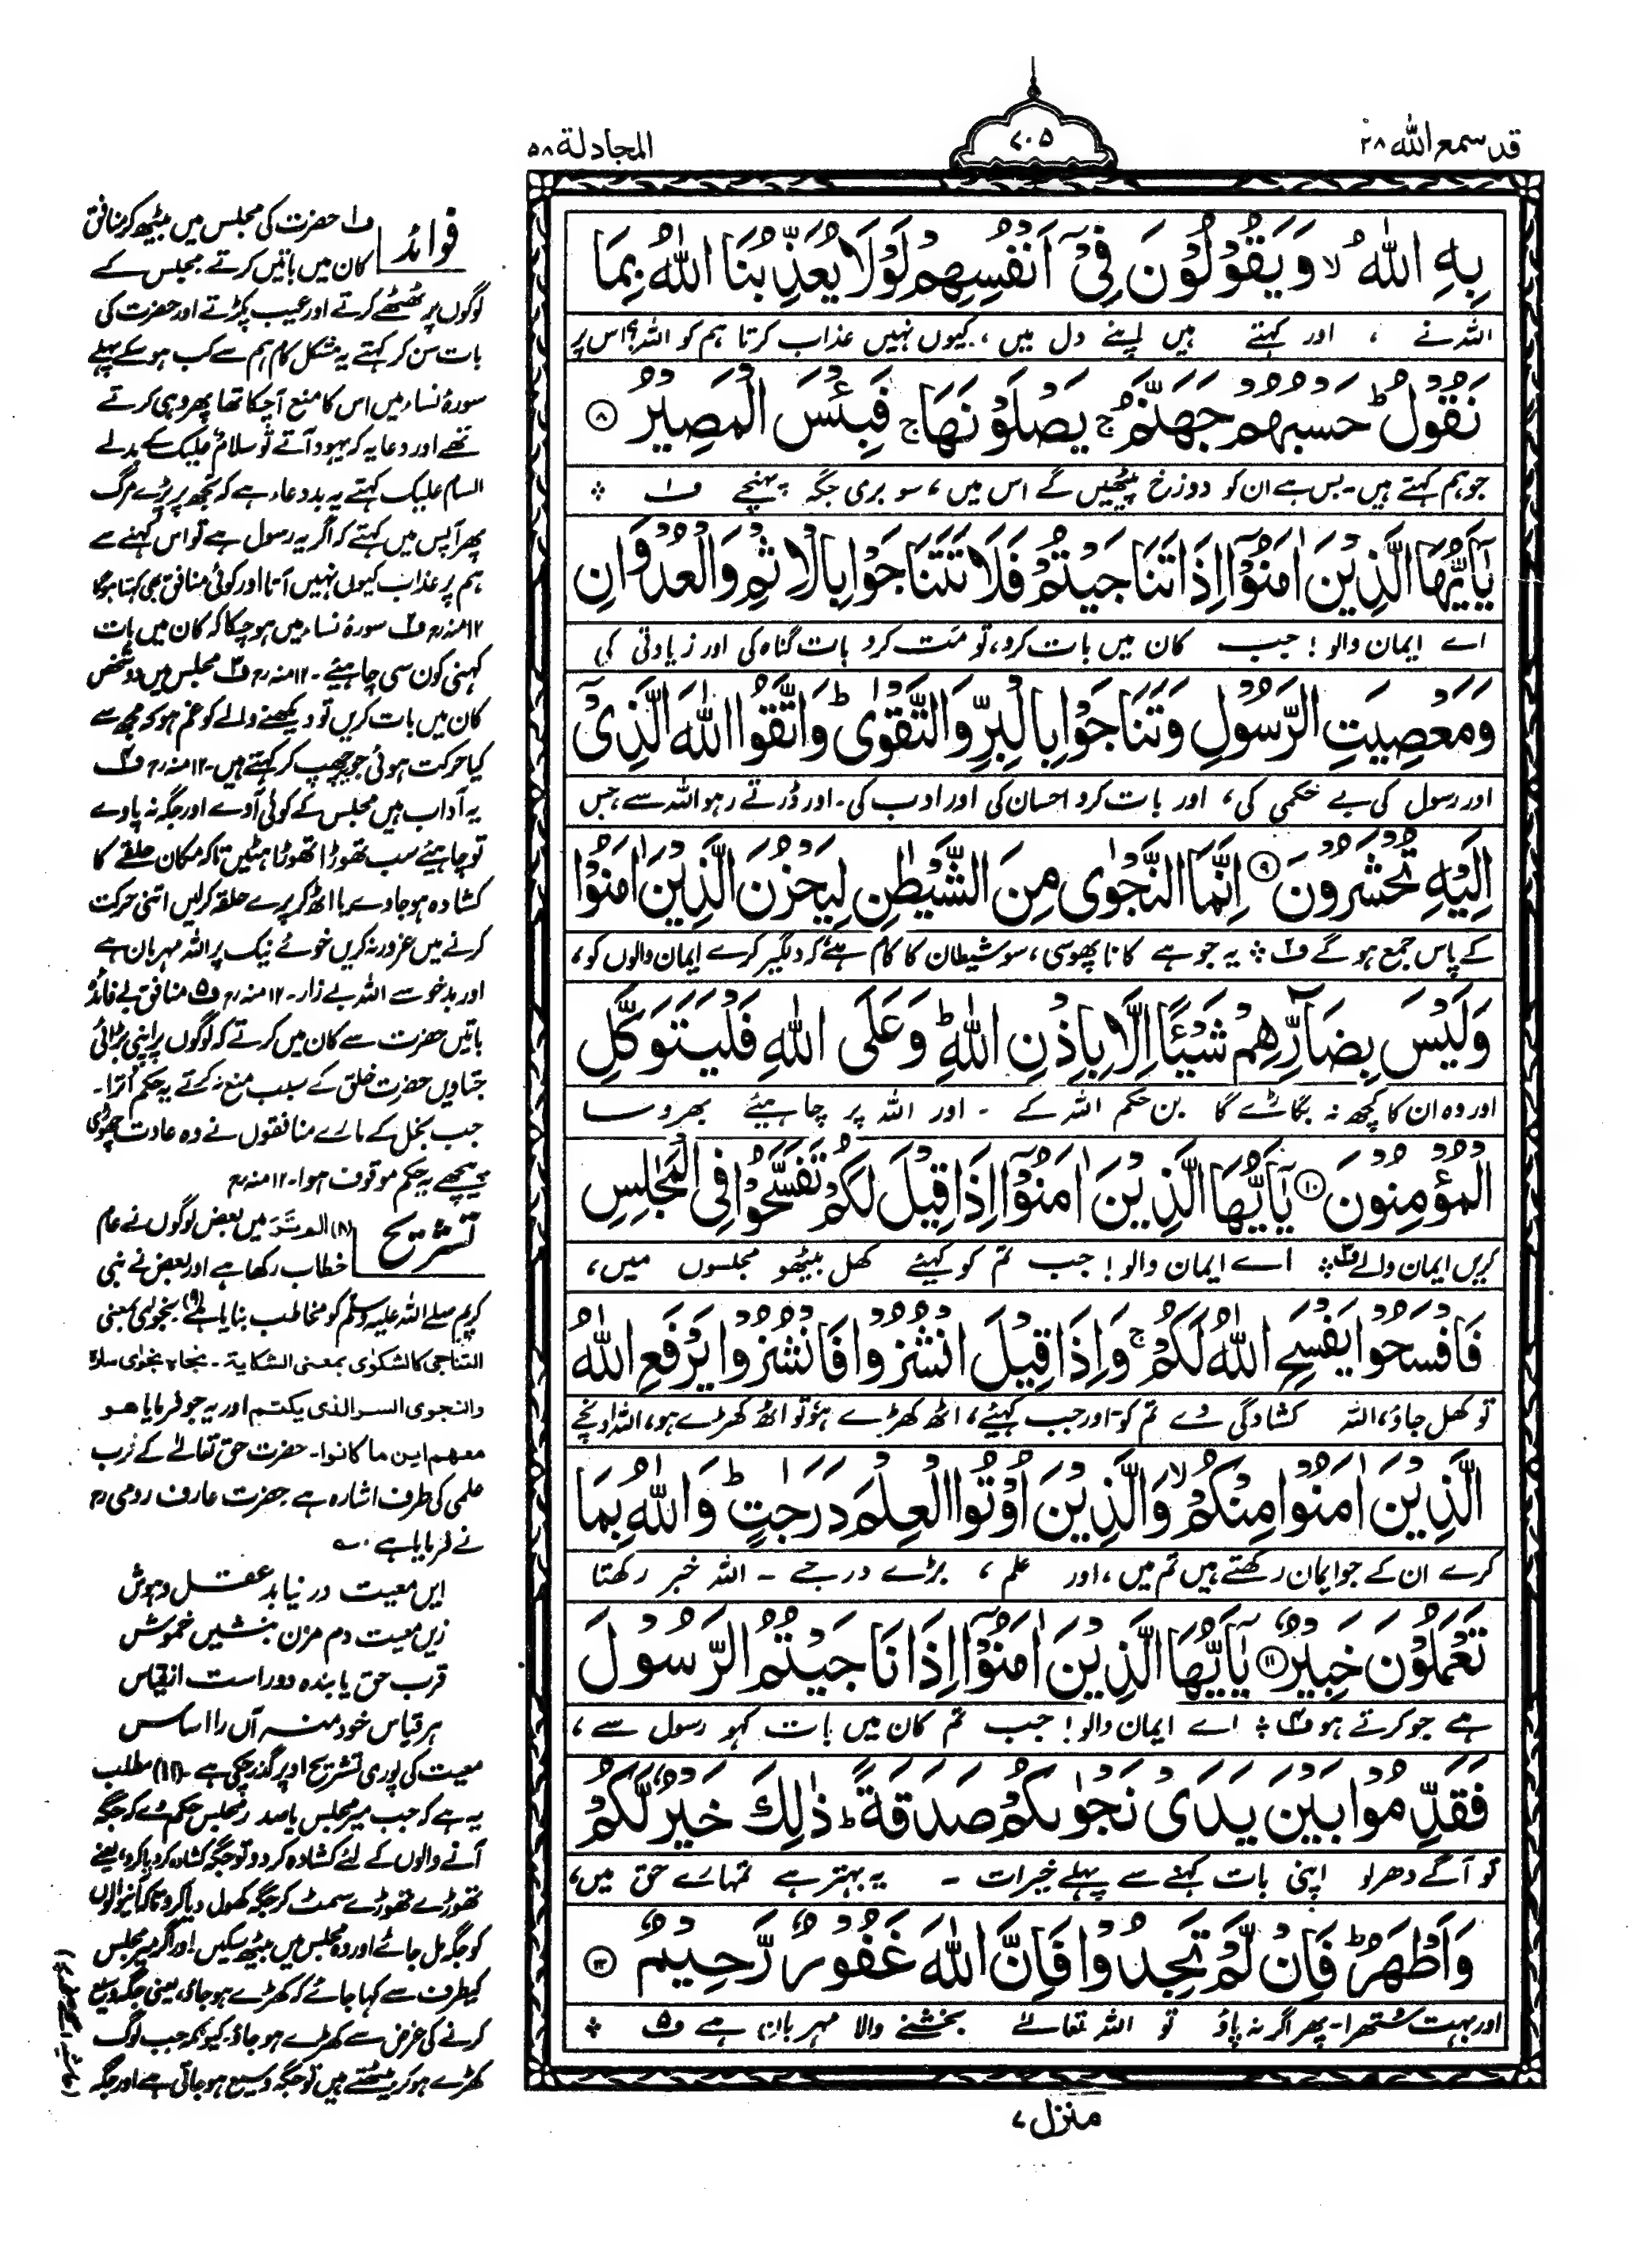 قد سمع الله ٢٨
٧٠٥
المجادلة ٥٨
بِهِ اللّٰهُ ۙ وَيَقُوْلُوْنَ فِيْۤ اَنْفُسِهِمْ لَوْلَا يُعَذِّبُنَا اللّٰهُ بِمَا
اللہ نے ، اور کہتے ہیں اپنے دل میں ، کیوں نہیں عذاب کرتا ہم کو اللہ؟ اس پر
نَقُوْلُ ؕ حَسْبُهُمْ جَهَنَّمُ ۚ يَصْلَوْنَهَا ۚ فَبِئْسَ الْمَصِيْرُ ﴿٨﴾
جو ہم کہتے ہیں۔ بس ہے ان کو دوزخ پیٹھیں گے اس میں ، سو بری جگہ پہنچے ف۱ ※
يٰۤاَيُّهَا الَّذِيْنَ اٰمَنُوْۤا اِذَا تَنَاجَيْتُمْ فَلَا تَتَنَاجَوْا بِالْاِثْمِ وَالْعُدْوَانِ
اے ایمان والو ! جب کان میں بات کرو، تو مت کرو بات گناہ کی اور زیادتی کی
وَمَعْصِيَتِ الرَّسُوْلِ وَتَنَاجَوْا بِالْبِرِّ وَالتَّقْوٰى ؕ وَاتَّقُوا اللّٰهَ الَّذِيْۤ
اور رسول کی بے حکمی کی، اور بات کرو احسان کی اور ادب کی۔ اور ڈرتے رہو اللہ سے، جس
اِلَيْهِ تُحْشَرُوْنَ ﴿٩﴾ اِنَّمَا النَّجْوٰى مِنَ الشَّيْطٰنِ لِيَحْزُنَ الَّذِيْنَ اٰمَنُوْا
کے پاس جمع ہو گے ف۲ ※ یہ جو ہے کانا پھوسی، سو شیطان کا کام ہے، کہ دلگیر کرے ایمان والوں کو،
وَلَيْسَ بِضَآرِّهِمْ شَيْـًٔا اِلَّا بِاِذْنِ اللّٰهِ ؕ وَعَلَى اللّٰهِ فَلْيَتَوَكَّلِ
اور وہ ان کا کچھ نہ بگاڑے گا بن حکم اللہ کے ۔ اور اللہ پر چاہیئے بھروسا
الْمُؤْمِنُوْنَ ﴿١٠﴾ يٰۤاَيُّهَا الَّذِيْنَ اٰمَنُوْۤا اِذَا قِيْلَ لَكُمْ تَفَسَّحُوْا فِى الْمَجٰلِسِ
کریں ایمان والے ف۳ ※ اے ایمان والو! جب تم کو کہیئے کھل بیٹھو مجلسوں میں،
فَافْسَحُوْا يَفْسَحِ اللّٰهُ لَكُمْ ۚ وَاِذَا قِيْلَ انْشُزُوْا فَانْشُزُوْا يَرْفَعِ اللّٰهُ
تو کھل جاؤ، اللہ کشادگی دے تم کو۔ اور جب کہیئے، اٹھ کھڑے ہو، تو اٹھ کھڑے ہو، اللہ اونچے
الَّذِيْنَ اٰمَنُوْا مِنْكُمْ ۙ وَالَّذِيْنَ اُوْتُوا الْعِلْمَ دَرَجٰتٍ ؕ وَاللّٰهُ بِمَا
کرے ان کے جو ایمان رکھتے ہیں تم میں، اور علم ، بڑے درجے ۔ اللہ خبر رکھتا
تَعْمَلُوْنَ خَبِيْرٌ ﴿١١﴾ يٰۤاَيُّهَا الَّذِيْنَ اٰمَنُوْۤا اِذَا نَاجَيْتُمُ الرَّسُوْلَ
ہے جو کرتے ہو ف۴ ※ اے ایمان والو! جب تم کان میں بات کہو رسول سے،
فَقَدِّمُوْا بَيْنَ يَدَىْ نَجْوٰىكُمْ صَدَقَةً ؕ ذٰلِكَ خَيْرٌ لَّكُمْ
تو آگے دھر لو اپنی بات کہنے سے پہلے خیرات ۔ یہ بہتر ہے تمہارے حق میں،
وَاَطْهَرُ ؕ فَاِنْ لَّمْ تَجِدُوْا فَاِنَّ اللّٰهَ غَفُوْرٌ رَّحِيْمٌ ﴿١٢﴾
اور بہت ستھرا۔ پھر اگر نہ پاؤ تو اللہ تعالےٰ بخشنے والا مہربان ہے ف۵ ※
منزل ٧
فوائد
ف۱ حضرت کی مجلس میں بیٹھ کر منافق
کان میں باتیں کرتے مجلس کے
لوگوں پر ٹھٹھے کرتے اور عیب پکڑتے اور حضرت کی
بات سن کر کہتے یہ مشکل کام ہم سے کب ہو سکے پہلے
سورۂ نساء میں اس کا منع آ چکا تھا پھر وہی کرتے
تھے اور دعا یہ کہ یہود آتے تو سلام علیک کے بدلے
السام علیک کہتے یہ بددعاء ہے کہ تجھ پر پڑے مرگ
پھر آپس میں کہتے کہ اگر یہ رسول ہے تو اس کہنے سے
ہم پر عذاب کیوں نہیں آتا اور کوئی منافق بھی کہتا ہوگا
۱۲ منہ رح ف۲ سورۂ نساء میں ہو چکا کہ کان میں بات
کہنی کون سی چاہیئے ۔ ۱۲ منہ رح ف۳ مجلس میں دو شخص
کان میں بات کریں تو دیکھنے والے کو غم ہو کہ مجھ سے
کیا حرکت ہوئی جو چھپ کر کہتے ہیں۔ ۱۲ منہ رح ف۴
یہ آداب ہیں مجلس کے کوئی آوے اور جگہ نہ پاوے
تو چاہیئے سب تھوڑا تھوڑا ہٹیں تا کہ مکان حلقے کا
کشادہ ہو جاوے یا اٹھ کر پرے حلقہ کر لیں اتنی حرکت
کرنے میں غرور نہ کریں خوئے نیک پر اللہ مہربان ہے
اور بدخو سے اللہ بے زار۔ ۱۲ منہ رح ف۵ منافق بے فائدہ
باتیں حضرت سے کان میں کرتے کہ لوگوں پر اپنی بڑائی
جتاویں حضرت خلق کے سبب منع نہ کرتے یہ حکم اترا۔
جب بخل کے مارے منافقوں نے وہ عادت چھوڑی
پیچھے یہ حکم موقوف ہوا۔ ۱۲ منہ رح
تشریح
(۸) الم تر میں بعض لوگوں نے عام
خطاب رکھا ہے اور بعض نے نبی
کریم صلے اللہ علیہ وسلم کو مخاطب بنایا ہے (۹) نجویٰ بمعنی
التناجی کالشکوٰی بمعنی الشکایۃ ۔ نجاہ نجوٰی سارہ
والنجوی السر الذی یکتم اور یہ جو فرمایا هو
معهم این ما کانوا۔ حضرت حق تعالےٰ کے قرب
علمی کی طرف اشارہ ہے حضرت عارف رومی رح
نے فرمایا ہے ۔
ایں معیت در نیابد عقل و ہوش
زیں معیت دم مزن بنشیں خموش
قرب حق با بندہ دور است از قیاس
بر قیاس خود منہ آں را اساس
معیت کی پوری تشریح اوپر گذر چکی ہے ۔ (۱۱) مطلب
یہ ہے کہ جب میر مجلس یا صدر مجلس حکم دے کہ جگہ
آنے والوں کے لئے کشادہ کر دو تو جگہ کشادہ کر دیا کرو، یعنے
تھوڑے تھوڑے سمٹ کر جگہ کھول دیا کرو تا کہ آنیوالوں
کو جگہ مل جائے اور وہ مجلس میں بیٹھ سکیں اور اگر میر مجلس
کیطرف سے کہا جائے کہ کھڑے ہو جاؤ، یعنی جگہ وسیع
کرنے کی غرض سے کھڑے ہو جاؤ۔ کیونکہ جب لوگ
کھڑے ہو کر بیٹھتے ہیں تو جگہ وسیع ہو جاتی ہے اور جگہ